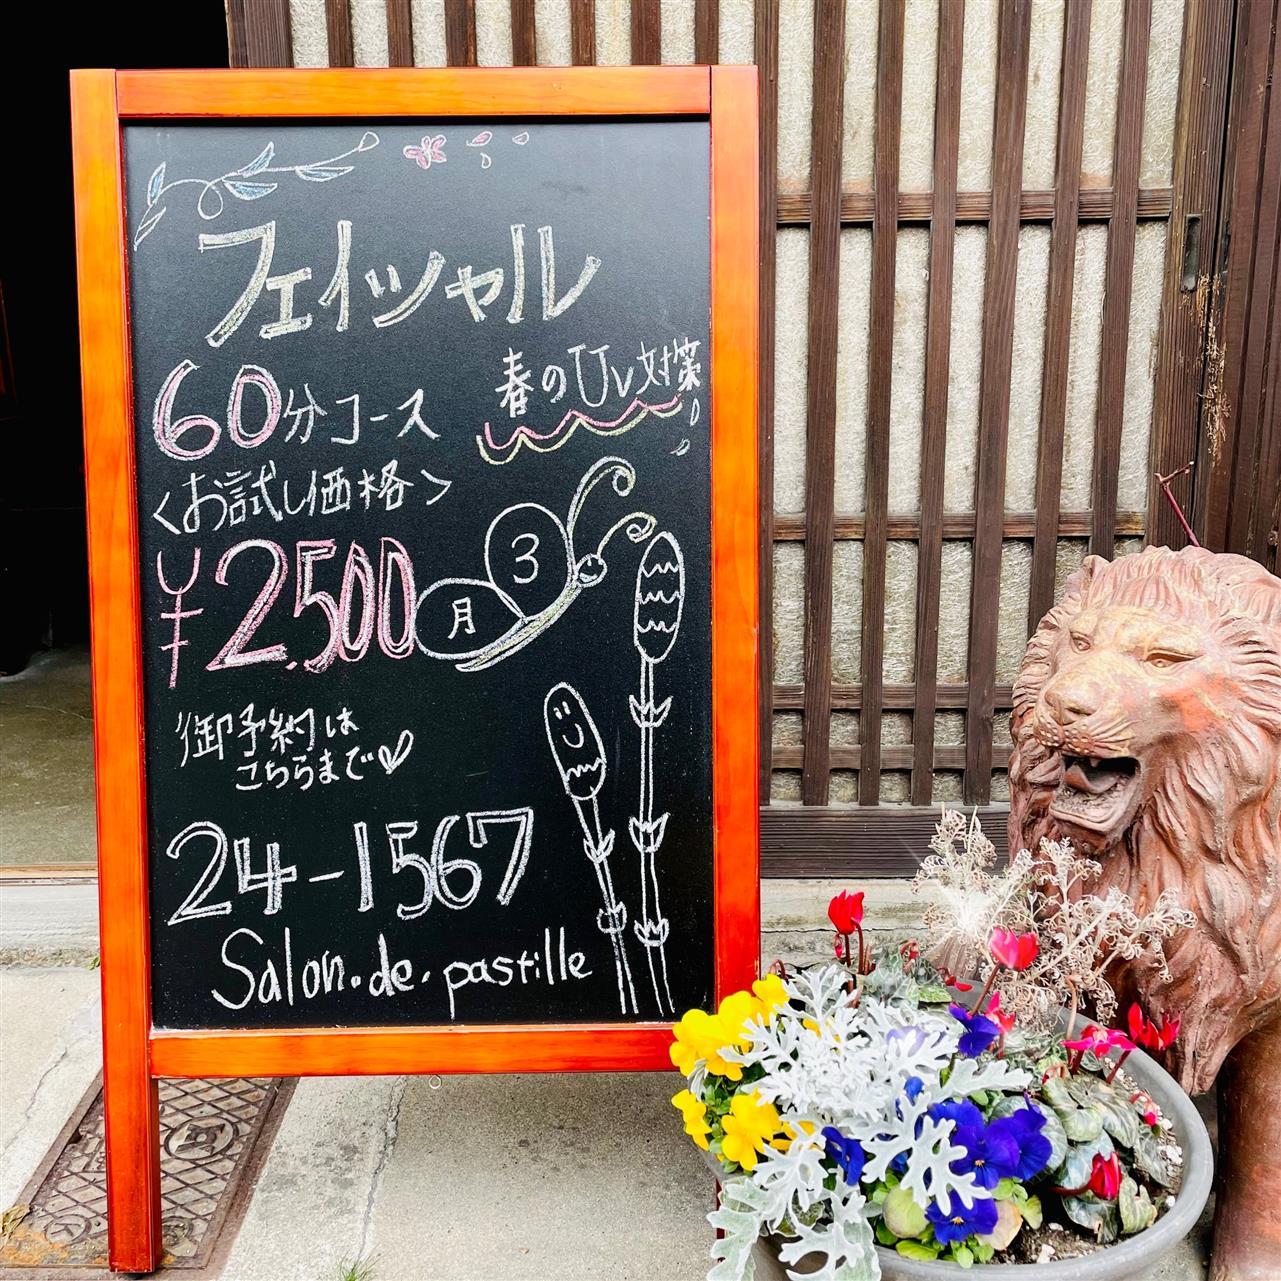 フェイシャル
春のUV対策
60分コース
<お試し価格>
¥2,500
3
月
御予約は
こちらまで♡
24-1567
Salon・de・pastille